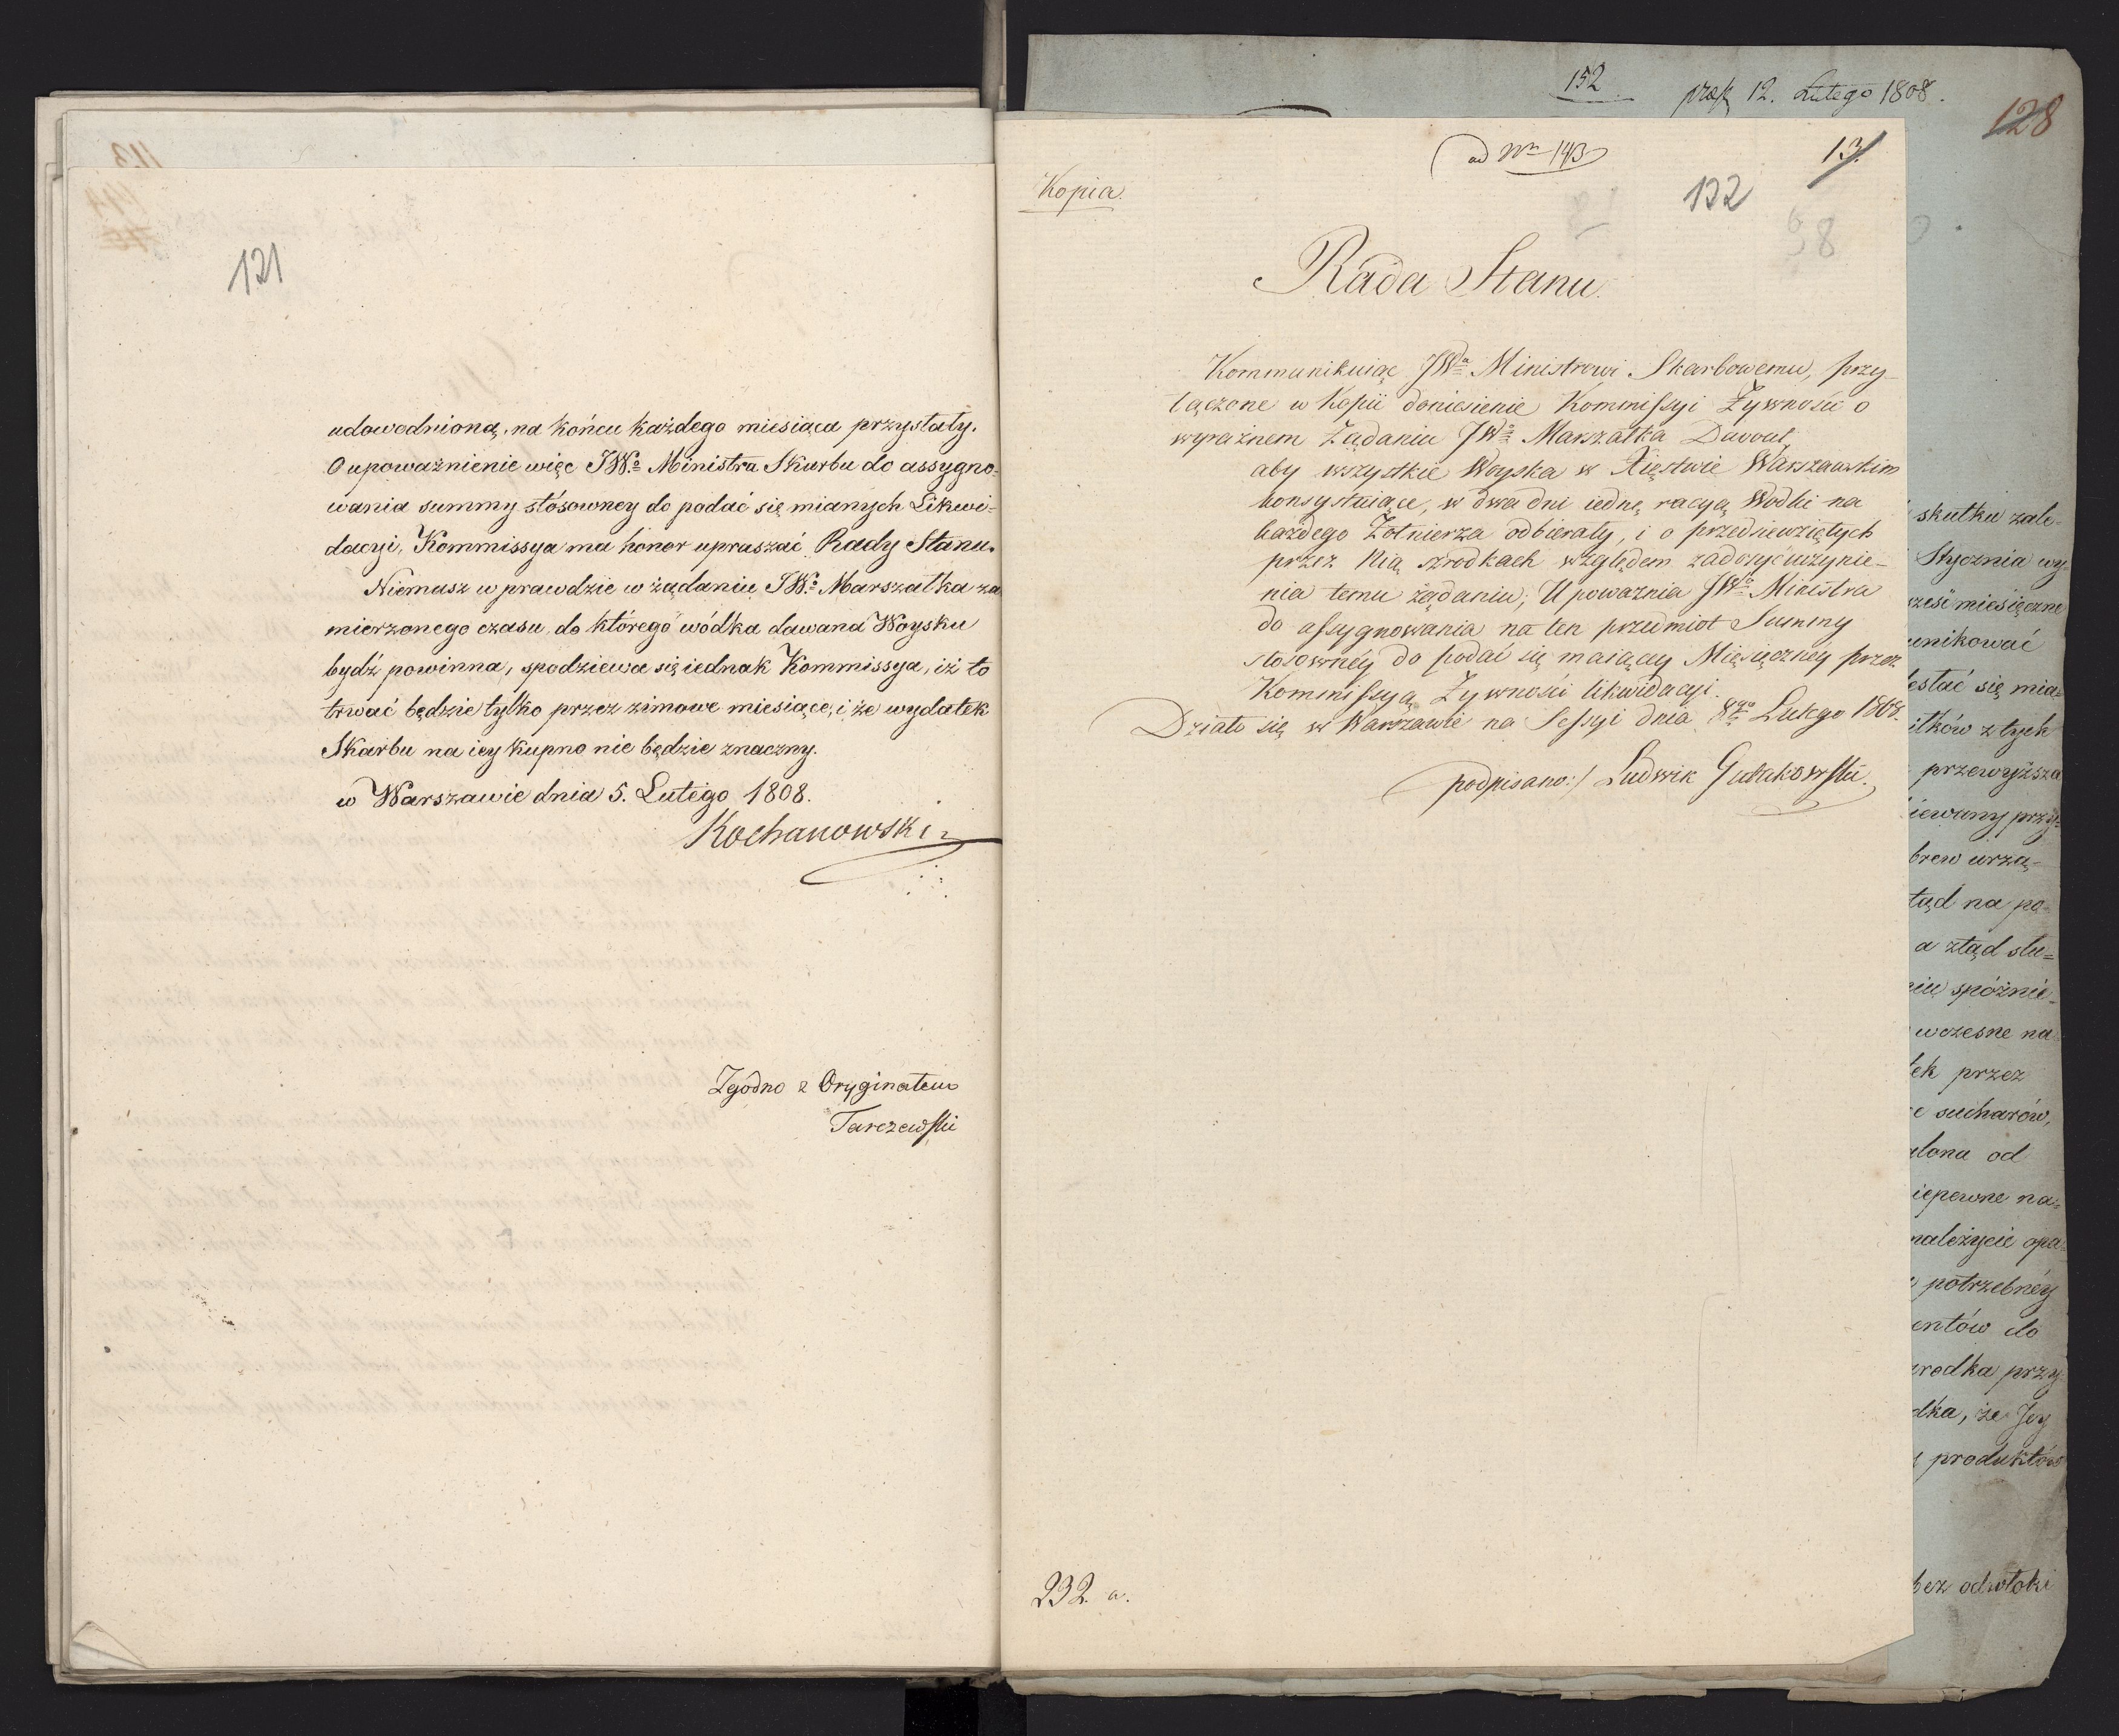 121
udowodnioną, na końcu każdego miesiąca przystały.
O upoważnienie więc JWo Ministra Skarbu do assygno-
wania summy stósowney do podać się mianych Likwi-
dacyi, Kommissya ma honor upraszać Rady Stanu.
Niemasz w prawdzie w żądaniu JWo Marszałka za
mierzonego czasu, do którego wódka dawana Woysku
bydź powinna, spodziewa się iednak Kommissya, iż to
trwać będzie tylko przez zimowe miesiące, i że wydatek
Skarbu na iey kupno nie będzie znaczny.
w Warszawie dnia 5. Lutego 1808.
Kochanowski
Zgodno z Oryginałem
Tarczewski
ad Nrm 143
13.
Kopia.
122
98
Rada Stanu.
Kommunikuiąc JWu Ministrowi Skarbowemu, przy-
łączone w Kopii doniesienie Kommissyi Żywności o
wyraźnem Żądaniu JWo Marszałka Davout,
aby wszystkie Woyska w Xięstwie Warszawskim
konsystuiące, w dwa dni iednę racyą Wodki na
każdego Żołnierza odbierały, i o przedsiewziętych
przez Nią srodkach względem zadosyćuczynie-
nia temu żądaniu; Upoważnia JWo Ministra
do assygnowania na ten przedmiot Summy
stosowney do podać się maiącey Mięsięczney przez
Kommissyą Żywności likwidacyi.
Działo się w Warszawie na Sessyi dnia 8go Lutego 1808.
podpisano:/ Ludwik Gutakowski.
232. a.
152
praes 12. Lutego 1808.
128
skutku zale-
Stycznia wy-
miesięczne
unikować
estać się mia-
itków z tych
przewyższa
iewany przy-
brew urzą-
tąd na po-
a ztąd słu-
niu spóźnie-
wczesne na-
ek przez
e sucharów,
lona od
iepewne na-
należycie opa-
potrzebnéy
entów do
rodka przy
dka, że Jey
produktów
bez odwłoki